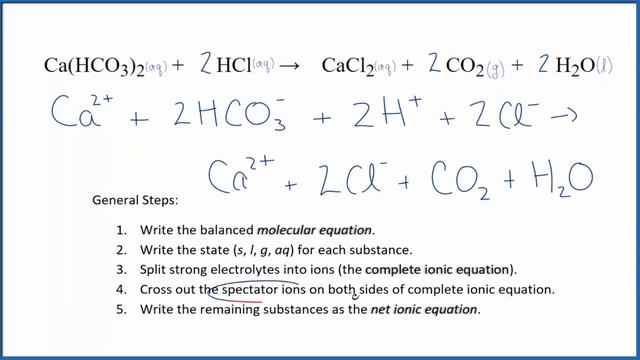 Ca(HCO₃)₂(aq) + 2HCl(aq) → CaCl₂(aq) + 2CO₂(g) + 2H₂O(l)
Ca²⁺ + 2HCO₃⁻ + 2H⁺ + 2Cl⁻ →
Ca²⁺ + 2Cl⁻ + CO₂ + H₂O
General Steps:
1. Write the balanced molecular equation.
2. Write the state (s, l, g, aq) for each substance.
3. Split strong electrolytes into ions (the complete ionic equation).
4. Cross out the spectator ions on both sides of complete ionic equation.
5. Write the remaining substances as the net ionic equation.